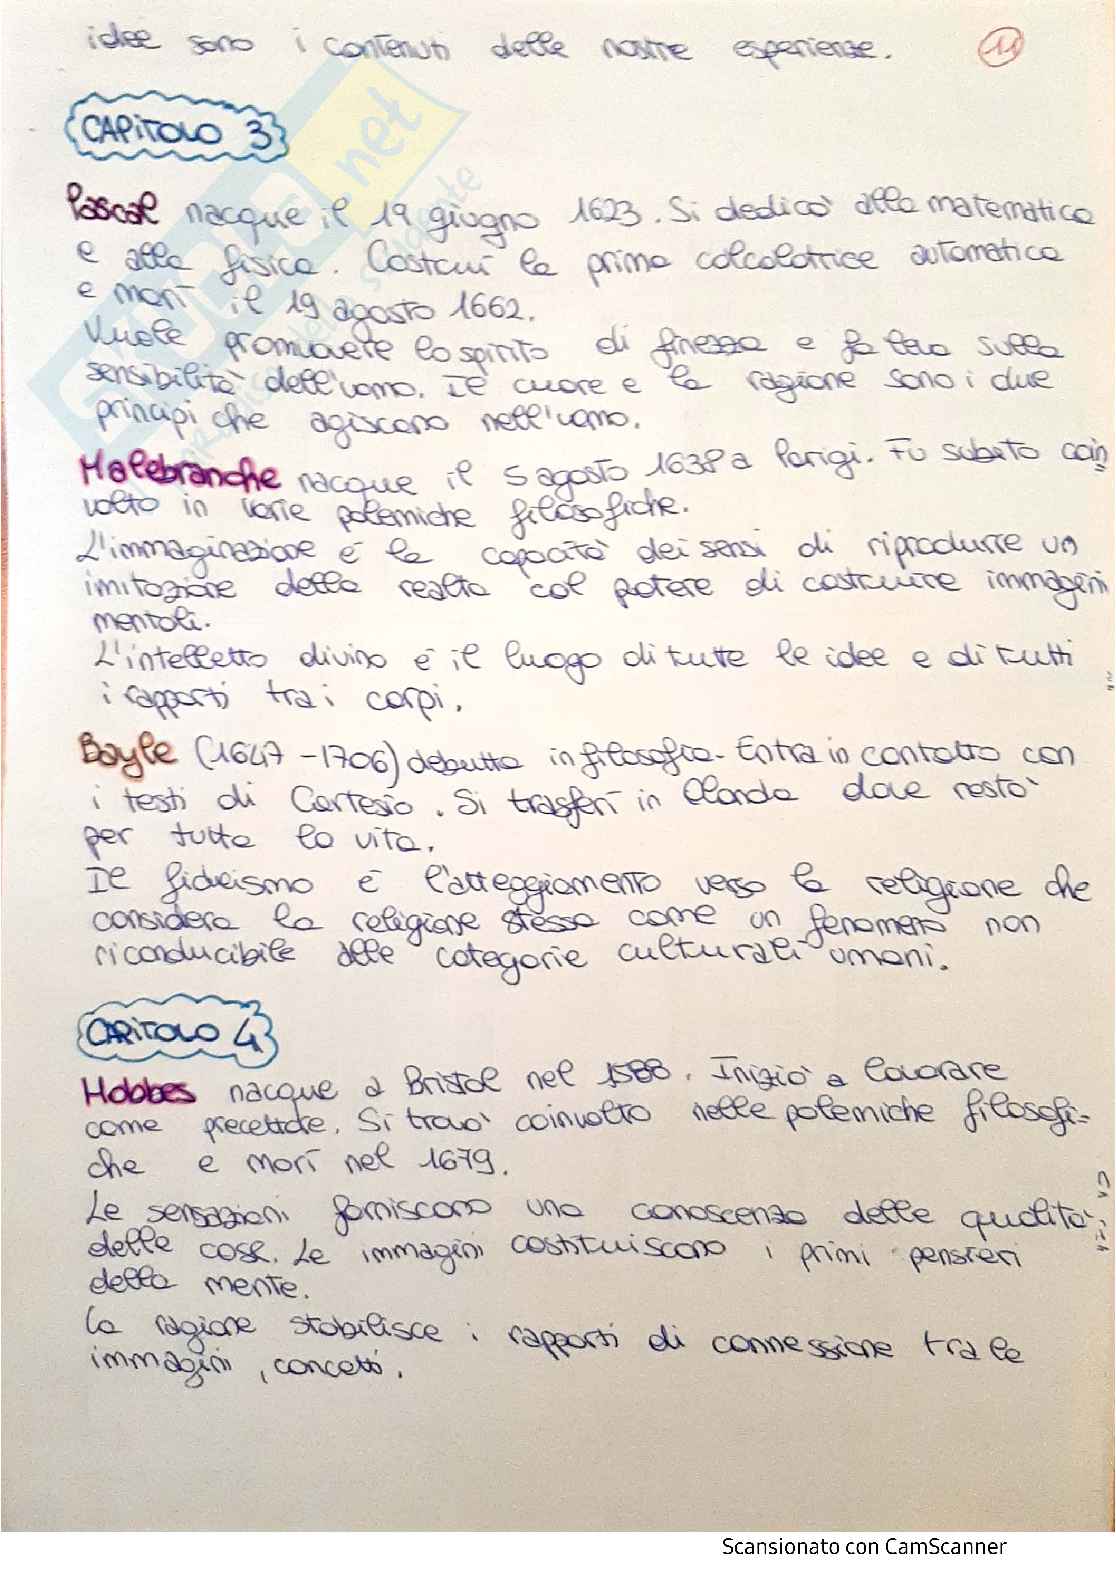 idee sono i contenuti delle nostre esperienze.
11
CAPITOLO 3
Pascal nacque il 19 giugno 1623. Si dedicò alla matematica
e alla fisica. Costruì la prima calcolatrice automatica
e morì il 19 agosto 1662.
Vuole promuovere lo spirito di finezza e fa leva sulla
sensibilità dell'uomo. Il cuore e la ragione sono i due
principi che agiscono nell'uomo.
Malebranche nacque il 5 agosto 1638 a Parigi. Fu subito coin
volto in varie polemiche filosofiche.
L'immaginazione è la capacità dei sensi di riprodurre un
imitazione della realtà col potere di costruire immagini
mentali.
L'intelletto divino è il luogo di tutte le idee e di tutti
i rapporti tra i corpi.
Bayle (1647-1706) debutta in filosofia. Entra in contatto con
i testi di Cartesio. Si trasferì in Olanda dove restò
per tutta la vita.
Il fideismo è l'atteggiamento verso la religione che
considera la religione stessa come un fenomeno non
riconducibile alle categorie culturali umani.
CAPITOLO 4
Hobbes nacque a Bristol nel 1588. Iniziò a lavorare
come precettore. Si trovò coinvolto nelle polemiche filosofi-
che e morì nel 1679.
Le sensazioni forniscono una conoscenza delle qualità
delle cose. Le immagini costituiscono i primi pensieri
della mente.
La ragione stabilisce i rapporti di connessione tra le
immagini, concetti.
Scansionato con CamScanner